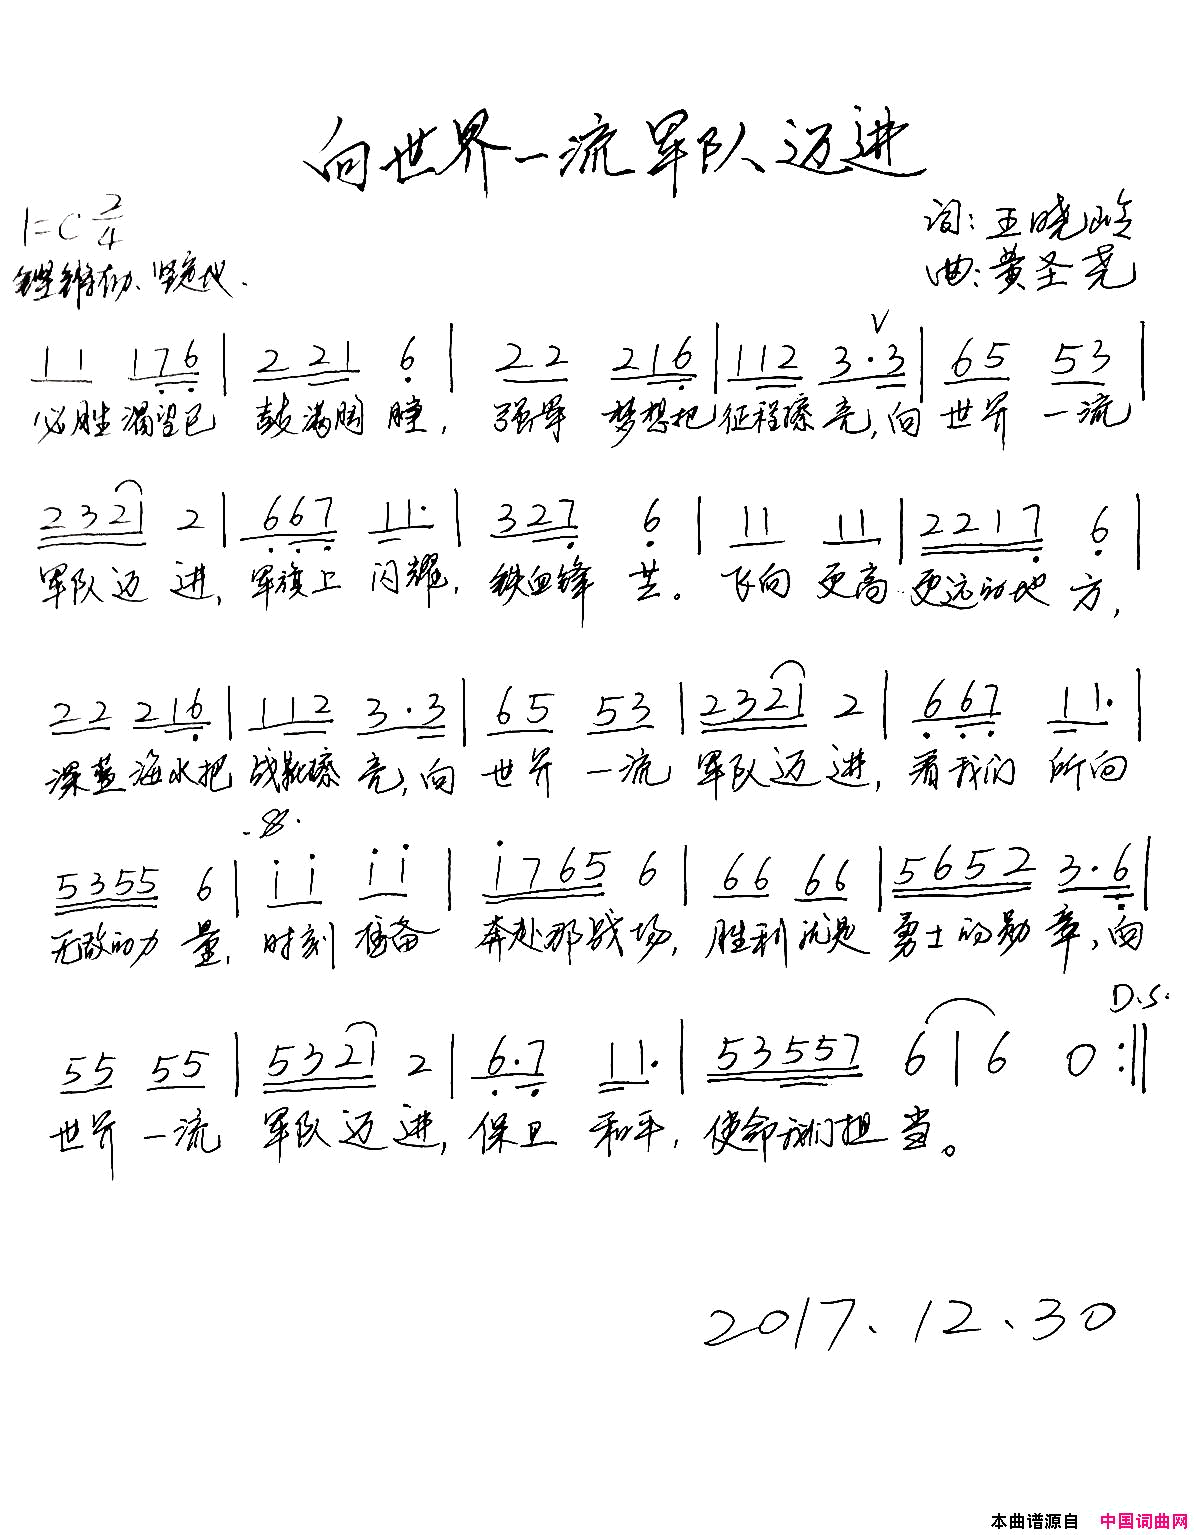 向世界一流军队迈进
1=C 2/4
词:王晓岭
铿锵有力、坚定地.
曲:黄圣尧
V
11 176 | 2 21 6 | 22 216 | 112 3·3 | 65 53 |
必胜渴望已 鼓满胸膛, 强军 梦想把 征程擦亮,向 世界 一流
2321 2 | 667 11· | 327 6 | 11 11 | 2217 6 |
军队迈进, 军旗上 闪耀, 铁血锋芒。 飞向 更高 更远的地方,
22 216 | 112 3·3 | 65 53 | 2321 2 | 667 11· |
深蓝海水把 战靴擦亮,向 世界 一流 军队迈进, 看我们 所向
5355 6 | i i i i | i765 6 | 66 66 | 5652 3·6 |
无敌的力量, 时刻 准备 奔赴那战场, 胜利就是 勇士的勋章,向
D.S.
55 55 | 5321 2 | 6·7 11· | 53557 6 | 6 0 :||
世界 一流 军队迈进, 保卫 和平, 使命我们担当。
2017.12.30
本曲谱源自 中国词曲网